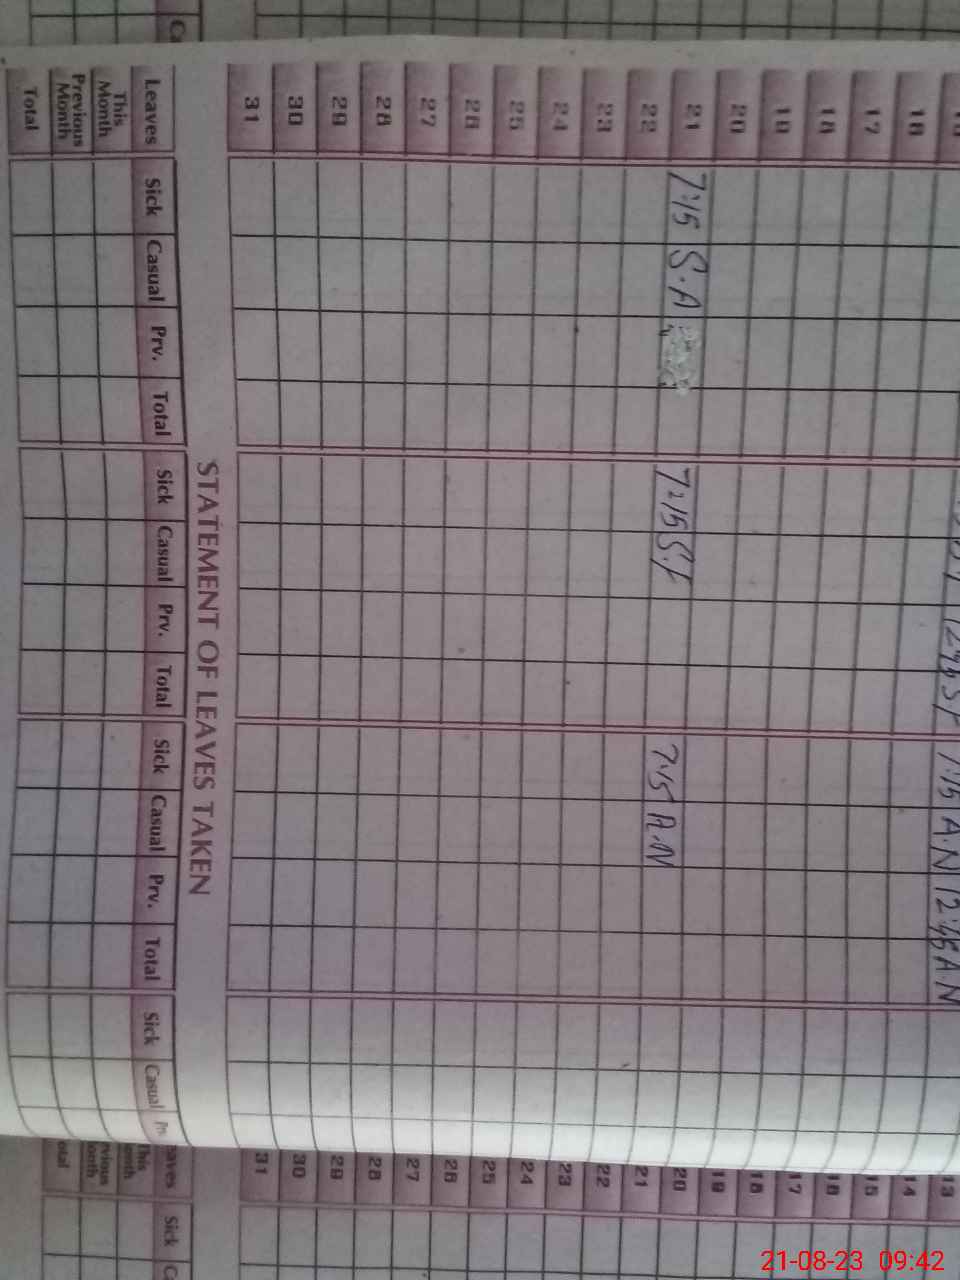 16
17
18
19
20
21 7:15 S.A 7:15 S.F 7:15 A.N
22
23
24
25
26
27
28
29
30
31
12:45 A.N
STATEMENT OF LEAVES TAKEN
Leaves Sick Casual Prv. Total Sick Casual Prv. Total Sick Casual Prv. Total Sick Casual
This Month
Previous Month
Total
13
14
15
16
17
18
19
20
21
22
23
24
25
26
27
28
29
30
31
Sick
21-08-23 09:42